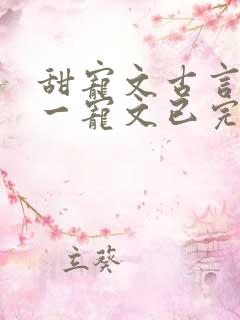 甜寵文古言
一寵文已完
立葵